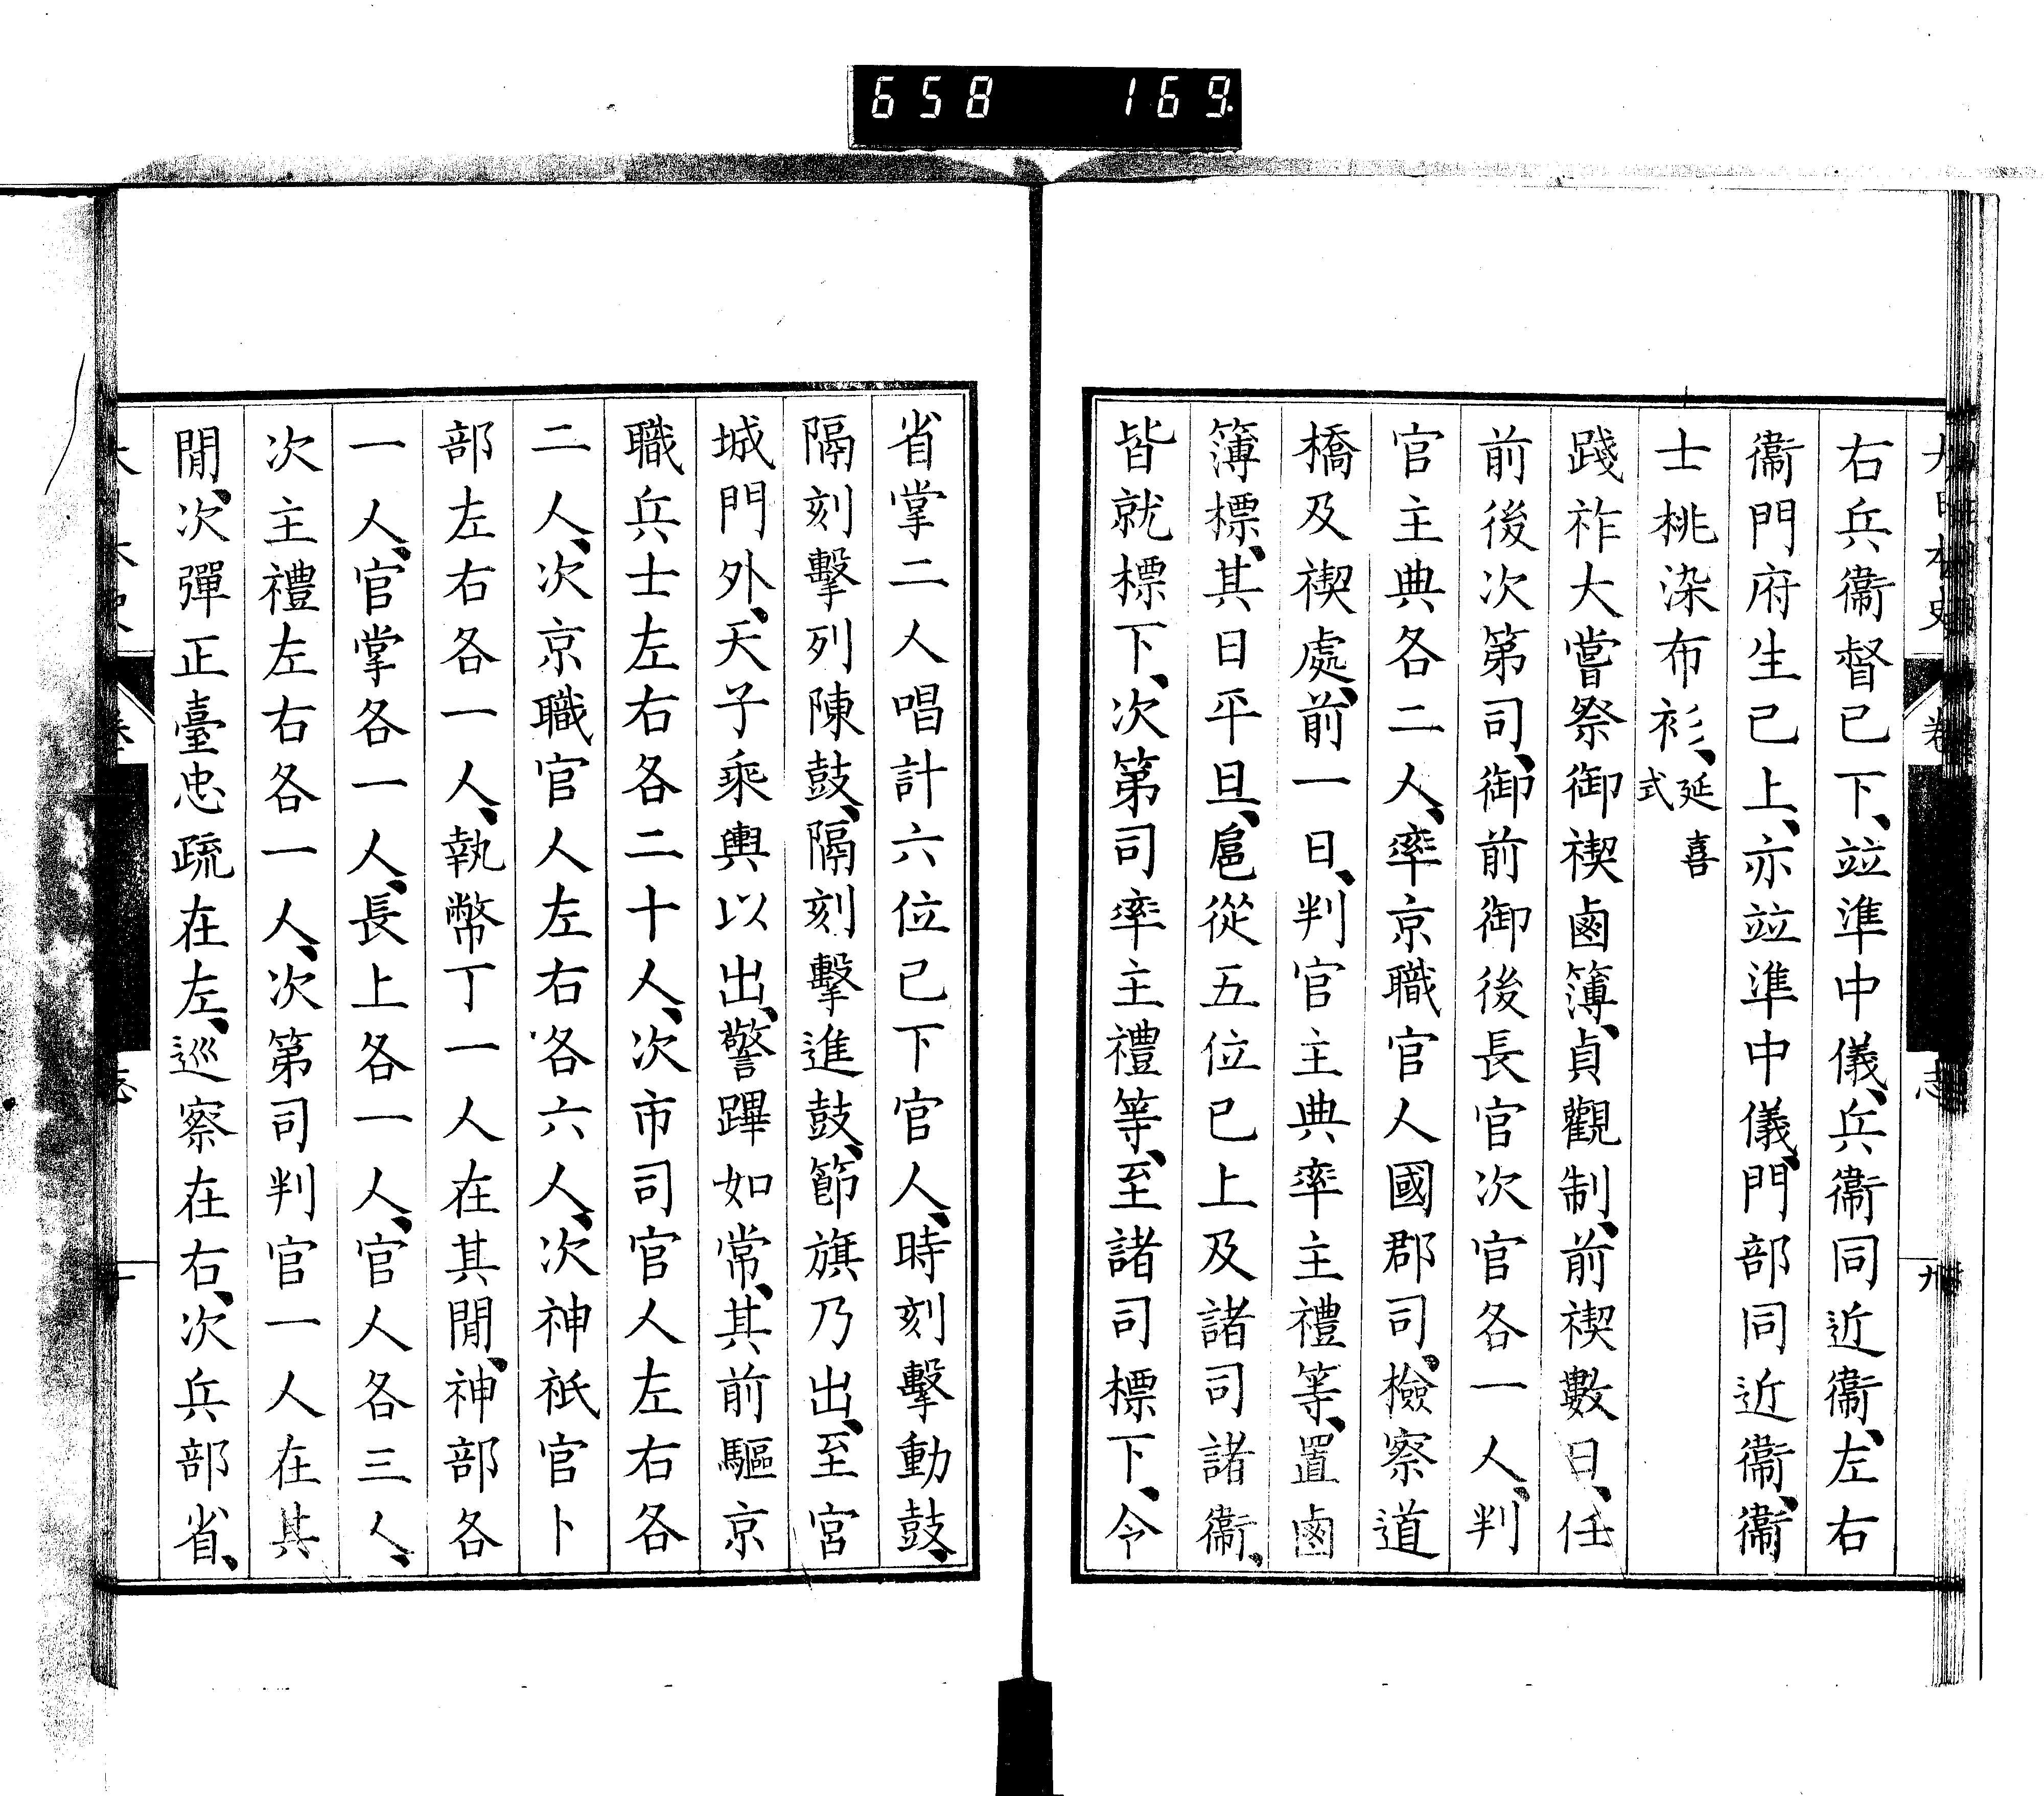 658 169
右兵衞督已下、竝準中儀、兵衞同近衞、左右
衞門府生已上、亦竝準中儀、門部同近衞、衞
士桃染布衫、延喜式
踐祚大嘗祭御禊鹵簿、貞觀制、前禊數日、任
前後次第司、御前御後長官次官各一人、判
官主典各二人、率京職官人國郡司、檢察道
橋及禊處、前一日、判官主典率主禮等、置鹵
簿標、其日平旦、扈從五位已上及諸司諸衞、
皆就標下、次第司率主禮等、至諸司標下、令
省掌二人唱計六位已下官人、時刻擊動鼓、
隔刻擊列陳鼓、隔刻擊進鼓、節旗乃出、至宮
城門外、天子乘輿以出、警蹕如常、其前驅京
職兵士左右各二十人、次市司官人左右各
二人、次京職官人左右各六人、次神祇官卜
部左右各一人、執幣丁一人在其閒、神部各
一人、官掌各一人、長上各一人、官人各三人、
次主禮左右各一人、次第司判官一人在其
閒、次彈正臺忠疏在左、巡察在右、次兵部省、